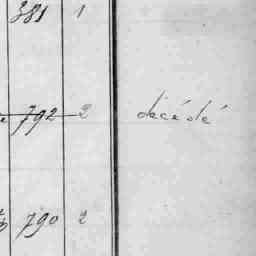 381 1
792 2 décédé
790 2